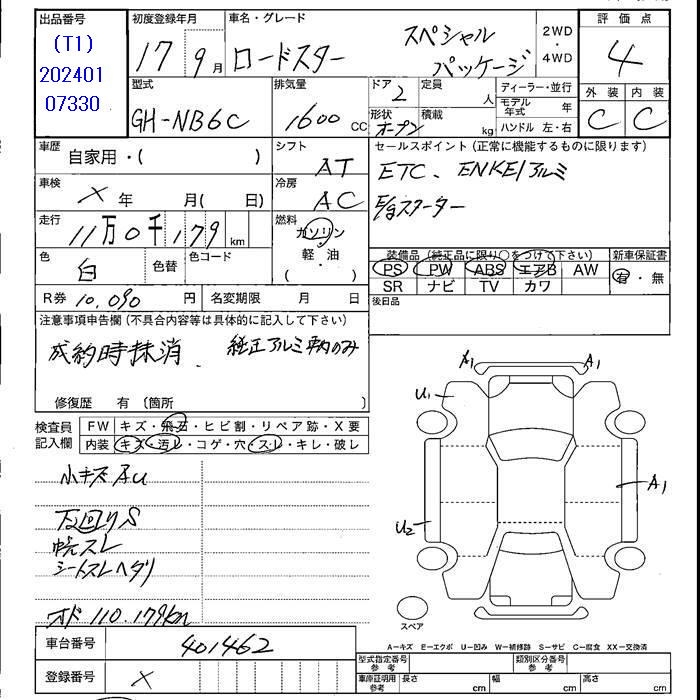 出品番号
(T1)
202401
07330
初度登録年月
17年9月
車名・グレード
ロードスター
スペシャル
パッケージ
2WD
・
4WD
評価点
4
型式
GH-NB6C
排気量
1600 CC
ドア 2
形状
オープン
定員
人
積載
kg
ディーラー・並行
モデル年式 年
ハンドル 左・右
外装 内装
C C
車歴
自家用・( )
シフト
AT
セールスポイント (正常に機能するものに限ります)
ETC、ENKEIアルミ
E/gスターター
車検
X 年 月( 日)
冷房
AC
走行
11万0千179km
燃料
ガソリン
・
軽・油
( )
色
白
色替
色コード
装備品 (純正品に限り○をつけて下さい)
新車保証書
PS PW ABS エアB AW
SR ナビ TV カワ
有・無
R券 10,090 円
名変期限 月 日
後日品
注意事項申告欄 (不具合内容等は具体的に記入して下さい)
成約時抹消. 純正アルミ車内のみ
修復歴 有 (箇所 )
検査員
記入欄
FW キズ・飛石・ヒビ割・リペア跡・X要
内装 キズ・汚レ・コゲ・穴・スレ・キレ・破レ
小キズAU
下回りS
幌スレ
シートスレヘタリ
オド110.179km
A1 A1
U1
A1
U2
スペア
車台番号
401462
登録番号
X
A−キズ E−エクボ U−凹み W−補修跡 S−サビ C−腐食 XX−交換済
型式指定番号
参考
類別区分番号
参考
車庫証明用
参考
長さ cm 幅 cm 高さ cm